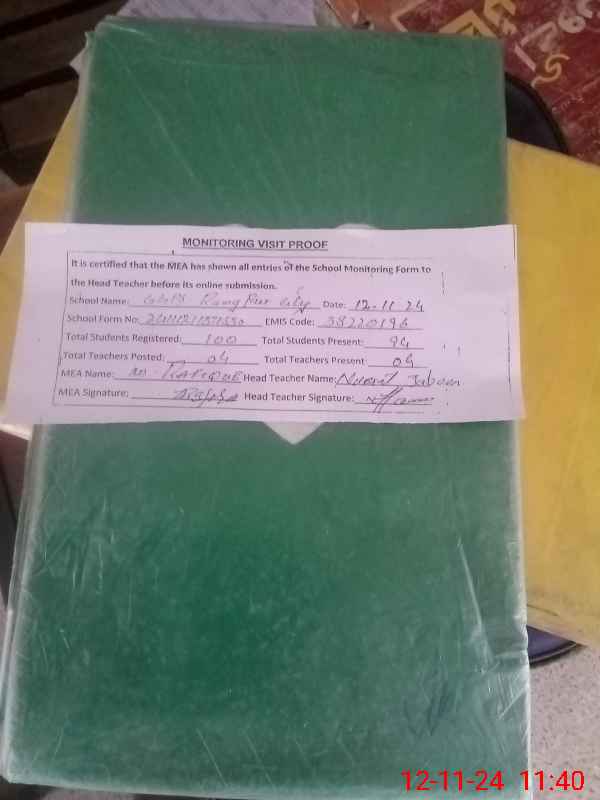 MONITORING VISIT PROOF
It is certified that the MEA has shown all entries of the School Monitoring Form to
the Head Teacher before its online submission.
School Name: Rang Pur City Date: 12-11-24
School Form No: EMIS Code: 38220196
Total Students Registered: 100 Total Students Present: 94
Total Teachers Posted: 04 Total Teachers Present: 04
MEA Name: M. RAFIQUE Head Teacher Name:
MEA Signature: Head Teacher Signature:
12-11-24 11:40